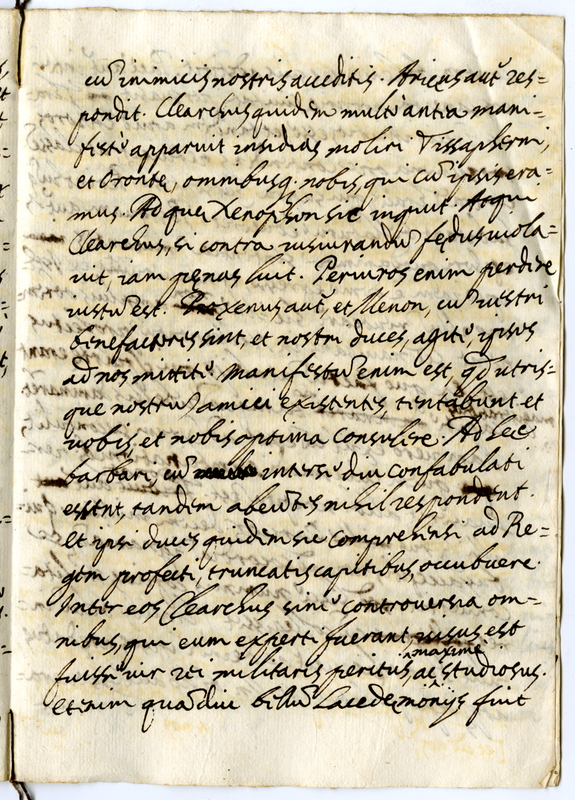 cū inimicis nostris acceditis. Ariæus aūt res=
pondit. Clearchus quidem multò antia mani=
festè apparuit insidias moliri Tissapherni,
et Oronte, omnibusq. nobis, qui cū ipsis era=
mus. Ad quæ Xenophon sic inquit. Atqui
Clearchus, si contra iusiurandū fędus viola=
vit, iam pęnas luit. Periuros enim perdere
iustū est. Proxenus aūt, et Menon, cū vestri
benefactores sint, et nostri duces, agitè, ipsos
ad nos mittitè. Manifestū enim est, qđ utris=
que nostrū amici existentes, tentabunt et
vobis, et nobis optima consulere. Ad hæc
barbari, cū inter sè diu confabulati
essent, tandem abeūtes nihil respondent.
Et ipsi duces quidem sic comprehensi ad Re=
gem profecti, truncatis capitibus, occubuere.
Inter eos Clearchus sinè controversia om=
nibus, qui eum experti fuerant, visus est
fuisse vir rei militaris peritus, ac maximè studiosus.
Etenim quādiu bellū Lacedęmonijs fuit